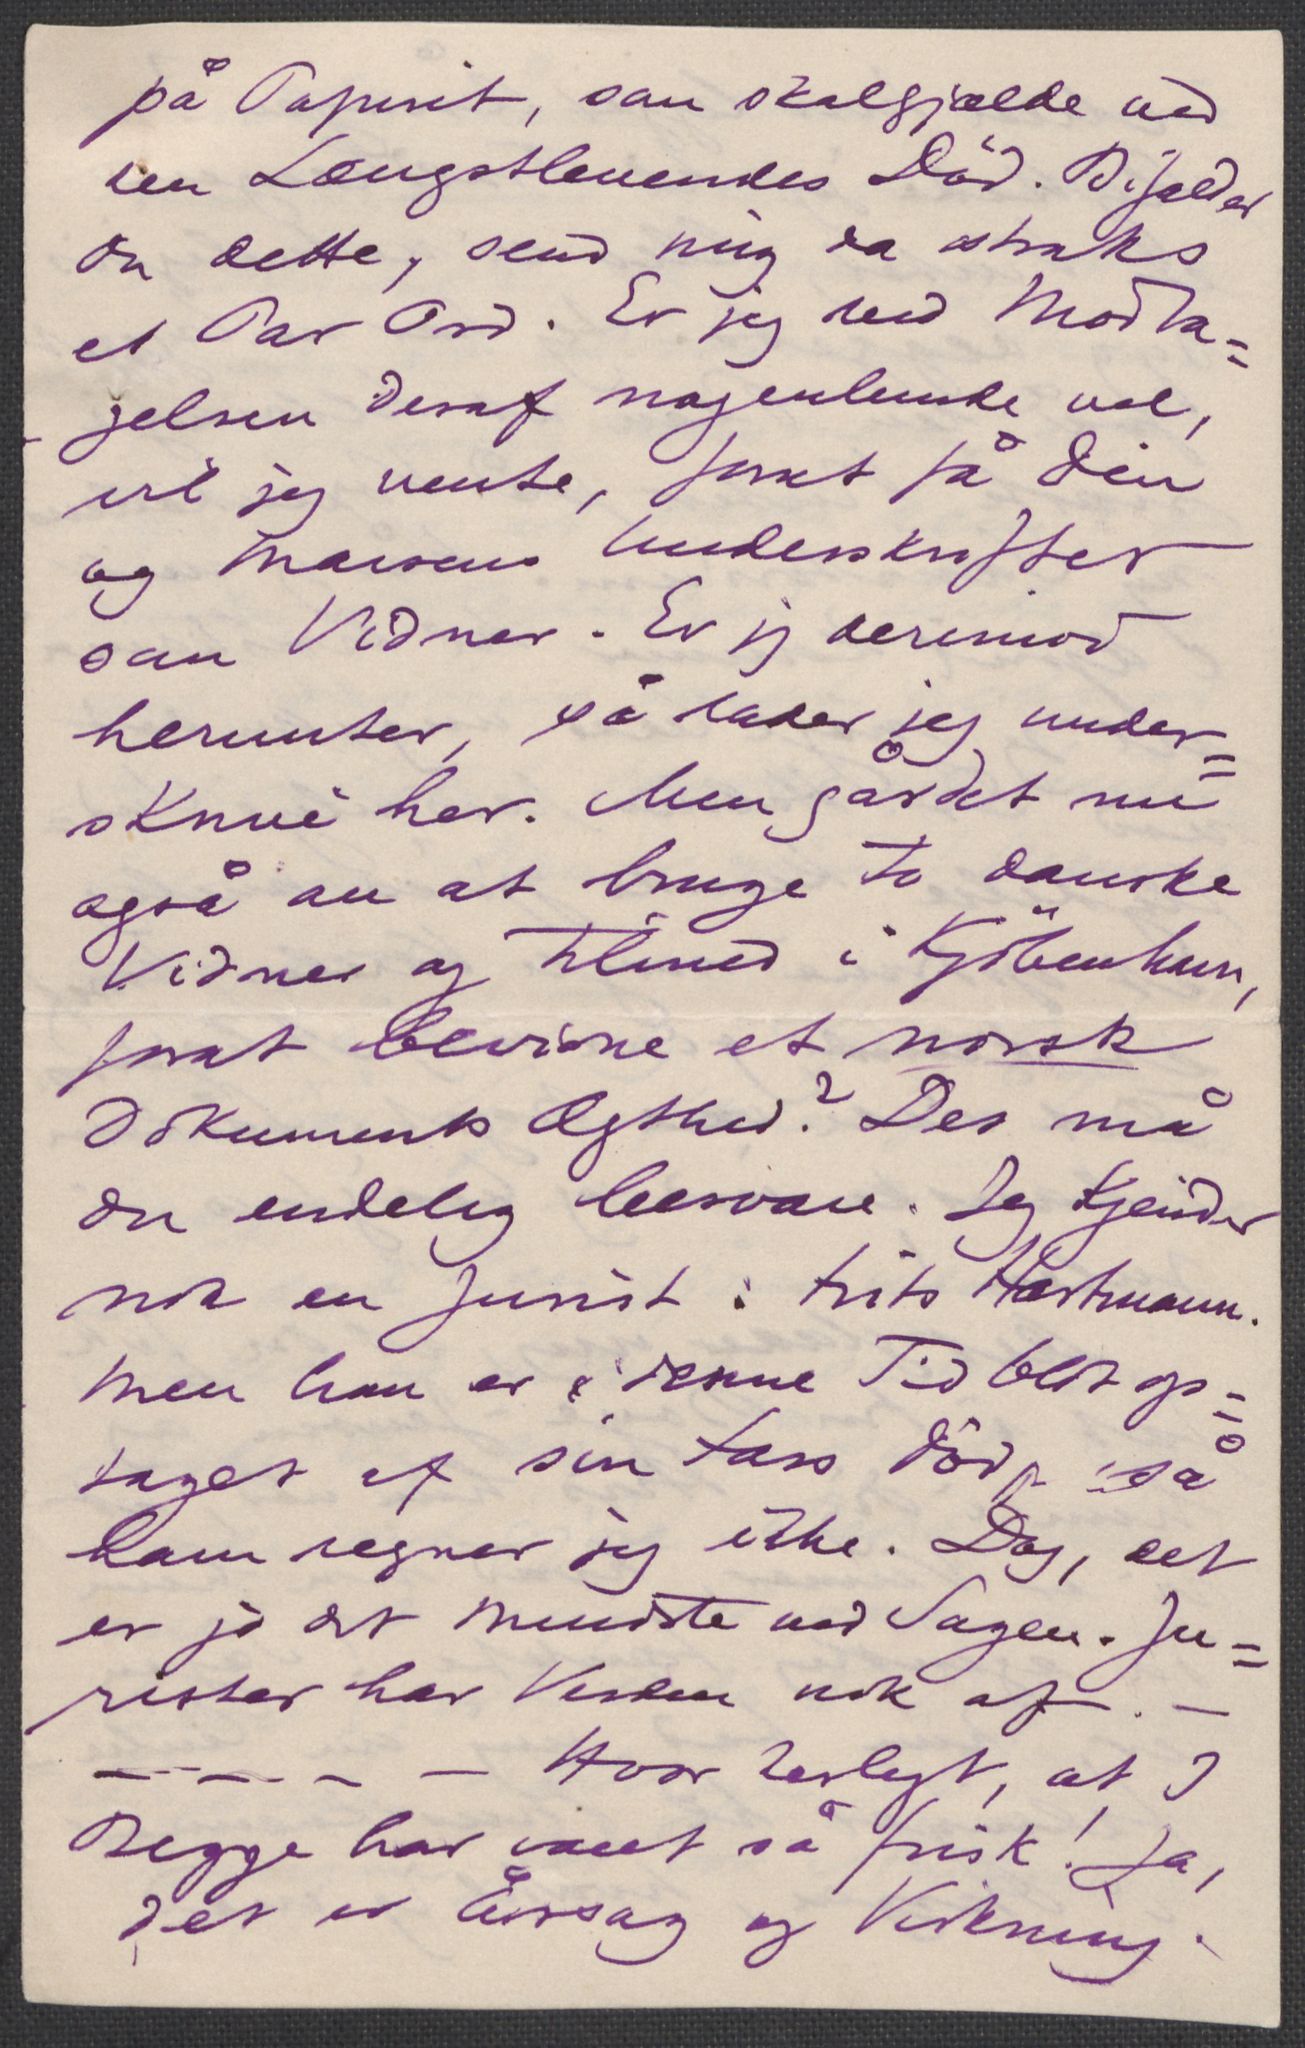 på Papiret, som skal gjælde ved
den Længstlevendes Död. Bifalder
du dette, send mig da straks
et Par Ord. Er jeg ved Modta=
gelsen deraf nogenlunde vel,
vil jeg vente, forat få din
og Marens Underskrifter
som Vidner. Er jeg derimod
herunter, så lader jeg under=
skrive her. Men går det nu
også an at bruge to danske
Vidner og tilmed i Kjöbenhavn,
forat bevidne et norsk
Dokuments Ægthed? Det må
du endelig besvare. Jeg kjender
nok en Jurist: Frits Hartmann.
Men han er i denne Tid blot op=
taget af sin Fars Död, så
ham regner jeg ikke. Dog, det
er jo det mindste ved Sagen. Ju=
rister har Verden nok af. —
— — — — Hvor herligt, at I
Begge har været så frisk! Ja,
det er Årsag og Virkning.